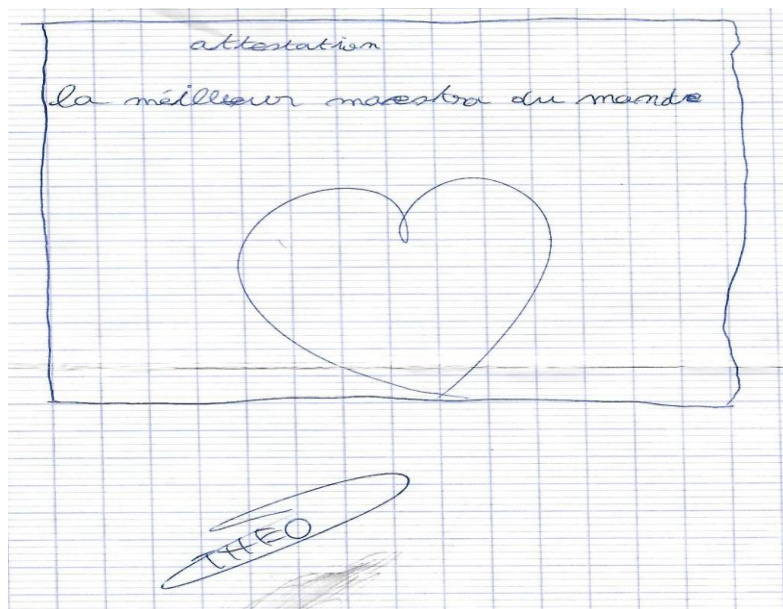 attestation
la méilleur maestra du monde
THEO